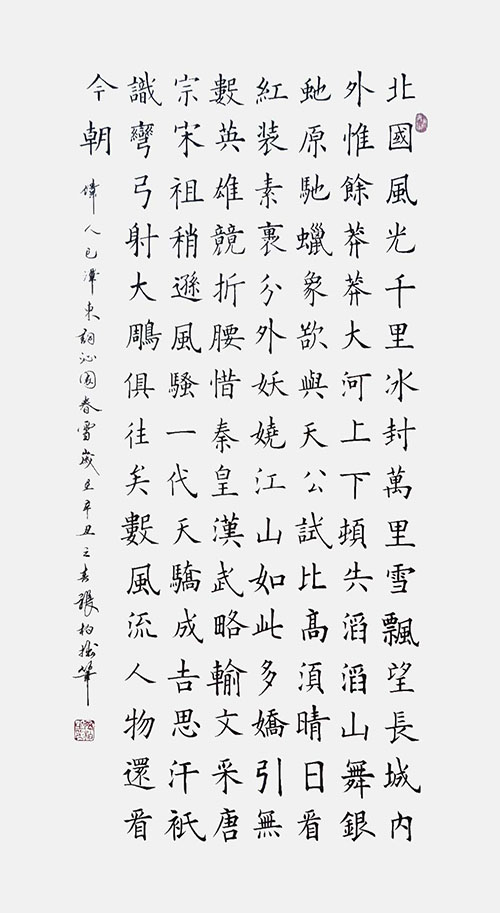 北國風光千里冰封萬里雪飄望長城內
外惟餘莽莽大河上下頓失滔滔山舞銀
虵原馳蠟象欲與天公試比高須晴日看
紅裝素裹分外妖嬈江山如此多嬌引無
數英雄競折腰惜秦皇漢武略輸文采唐
宗宋祖稍遜風騷一代天驕成吉思汗祇
識彎弓射大鵰俱往矣數風流人物還看
今朝
偉人毛澤東詞沁園春雪歲在辛丑之春張柏筆